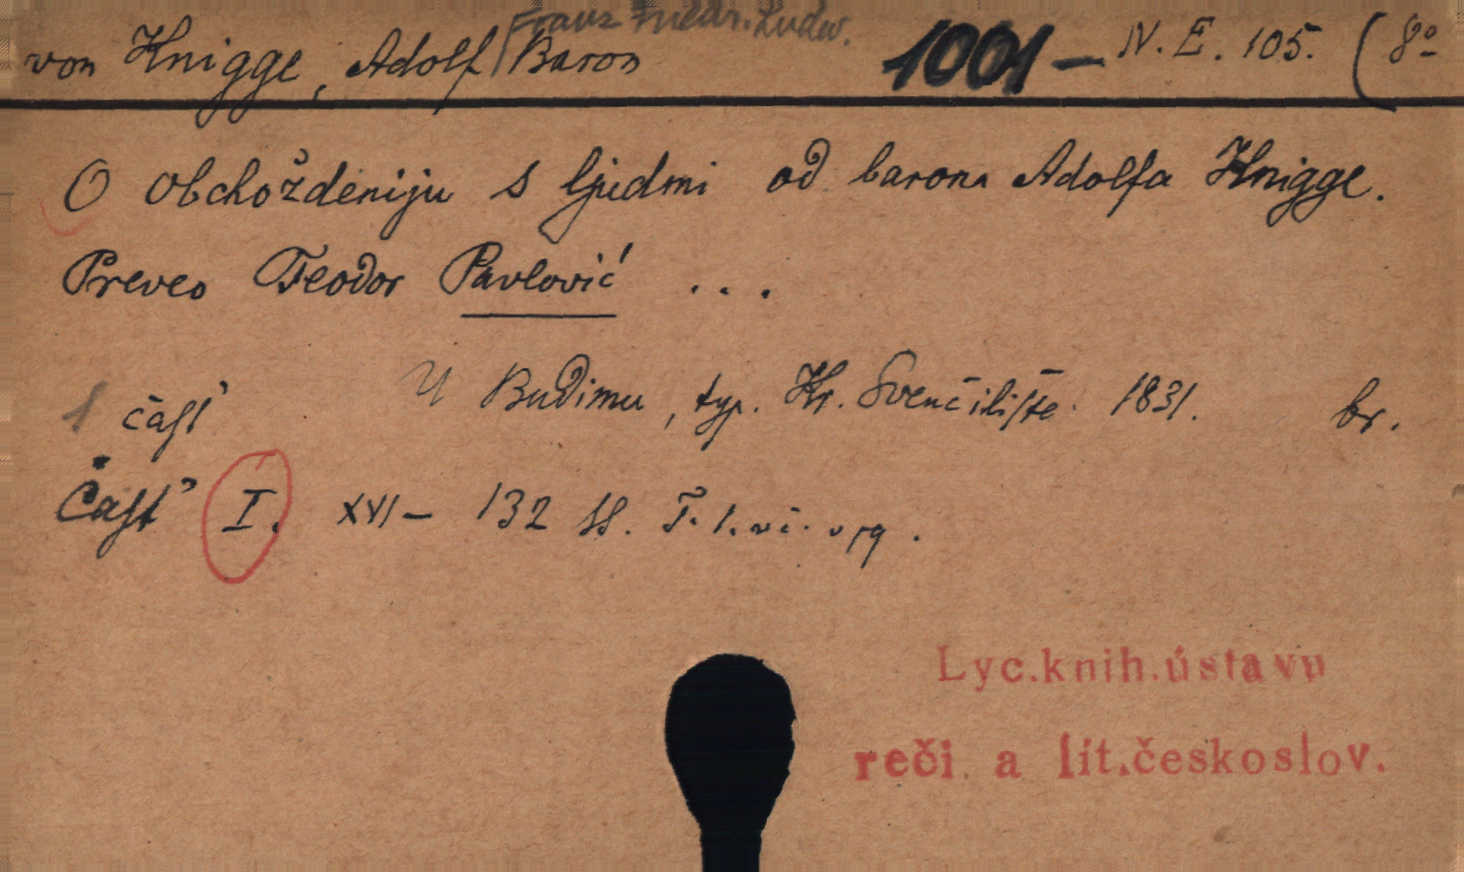 Franz Friedr. Ludw.
von Knigge, Adolf Baron 1001 – IV. E. 105. (8º
O obchoždeniju s ljudmi od barona Adolfa Knigge.
Preveo Teodor Pavlović ...
1 časť U Budimu, typ. Kr. Svenčilište 1831. br.
Časť I. XVI – 132 ss. T. 1.
Lyc.knih.ústavu
reči a lit.českoslov.